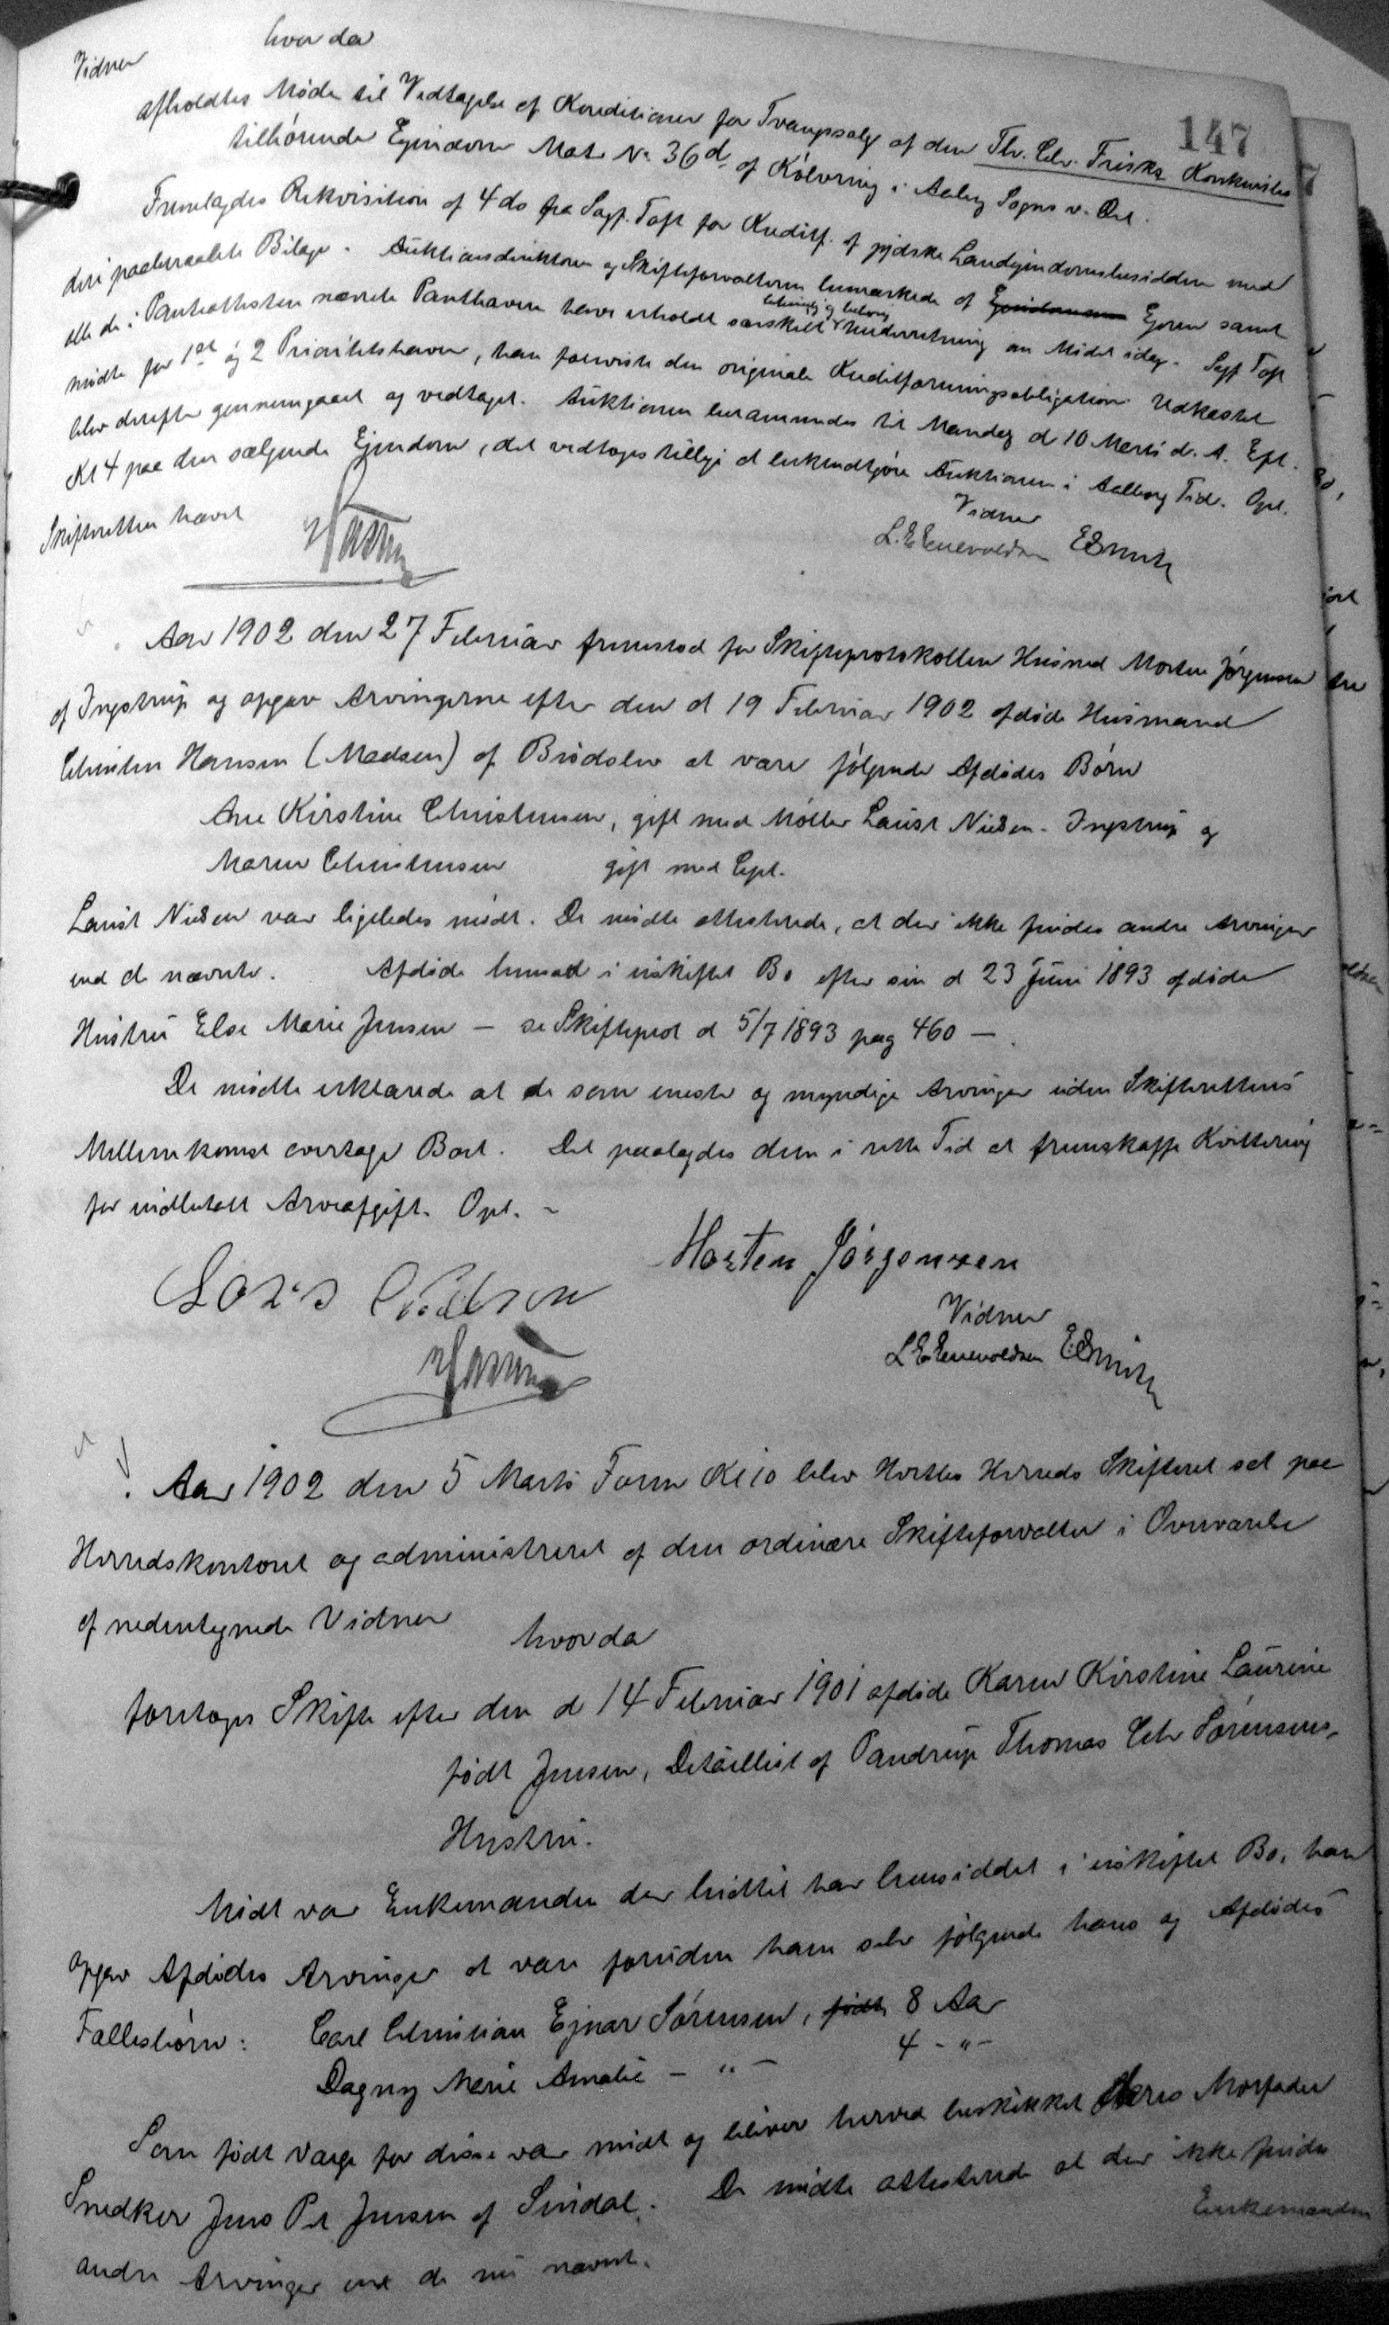 147
Vidner
hvor da
afholdtes Møde til Vedtagelse af Konditioner for Tvangssalg af den Th. Chr. Friska Konkursbo
tilhørende Ejendom Matr No 36d af Kølvring i Aaby Sogn v. Del.
Fremlagdes Rekvisition af 4 ds fra Sagf. Toft for Kreditf. af jydske Landejendomsbesiddere med
deri paaberaabte Bilage. Auktionsdirektøren og Skifteforvalteren bemærkede at Ejeren samt
alle de i Pantattesten nævnte Panthavere have erholdt særskilt Underretning om Mødet idag. Sagf Toft
mødte for 1st og 2 Prioritetshaver, han foreviste den originale Kreditforeningsobligation. Udkastet
blev derefter gennemgaaet og vedtaget. Auktionen berammedes til Mandag d 10 Marts d. A. Eft.
Kl 4 paa den sælgende Ejendom, det vedtoges tillige at bekendtgjøre Auktionen i Aalborg Tid. Opl.
Skifteretten hævet
Vidner
L. E. Enevoldsen ESmith
Aar 1902 den 27 Februar fremstod for Skifteprotokollen Husmd Morten Jørgensen
af Ingstrup og opgav Arvingerne efter den d 19 Februar 1902 afdøde Husmand
Christen Hansen (Madsen) af Brødslev at være følgende Afdødes Børn
Ane Kirstine Christensen, gift med Møller Laust Nielsen - Ingstrup og
Maren Christensen gift med Cpt.
Laust Nielsen var ligeledes mødt. De mødte attesterede, at der ikke findes andre Arvinger
end de nævnte. Afdøde hensad i uskiftet Bo efter sin d 23 Juni 1893 afdøde
Hustru Else Marie Jensen - se Skifteprot d 5/7 1893 pag 460 -.
De mødte erklærede at de som eneste og myndige Arvinger uden Skifterettens
Mellemkomst overtager Boet. Det paalagdes dem i rette Tid at fremskaffe Kvittering
for indbetalt Arveafgift. Opl. -
Morten Jörgensen
Vidner
L. E. Enevoldsen ESmith
Aar 1902 den 5 Marts Form Kl 10 blev Hvetbo Herreds Skifteret sat paa
Herredskontoret og administreret af den ordinære Skifteforvalter i Overværelse
af nedentegnede Vidner
hvorda
foretoges Skifte efter den d 14 Februar 1901 afdøde Karen Kirstine Laurine
født Jensen, Detaillist af Pandrup Thomas Chr Sørensens
Hustru.
Mødt var Enkemanden der hidtil har hensiddet i uskiftet Bo, han
opgav Afdødes Arvinger at være foruden ham selv følgende hans og Afdødes
Fællesbørn: Carl Christian Ejnar Sørensen, født 8 Aar
Dagny Marie Amalie - " - 4 - " -
Som født Værge for disse var mødt og bliver herved beskikket deres Morfader
Snedker Jens Pet Jensen af Sindal. De mødte attesterede at der ikke findes
andre Arvinger end de nu nævnt.
Enkemanden